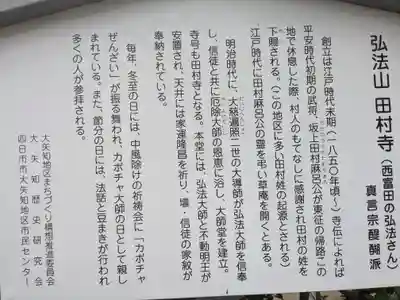 弘法山 田村寺(西富田の弘法さん)
真言宗醍醐派
創立は江戸時代末期(一八五七年頃~)寺伝によれば
平安時代初期の武将、坂上田村麻呂公が東征の帰路この
地で休息した際、村人のもてなしに感謝され田村の姓を
下賜される。(この地区に多い田村姓の起源とされる)
江戸時代に田村麻呂公の霊を弔い草庵を開くとある。
明治時代に、大慈遍照二世の大導師が弘法大師を信奉
し、信徒と共に厄除大師の恩恵に浴し、大師堂を建立。
寺号も田村寺となる。本堂には、弘法大師と不動明王が
安置され、天井には家運隆昌を祈り、壇・信徒の家紋が
奉納されている。
毎年、冬至の日には、中風除けの祈祷会に「カボチャ
ぜんざい」が振る舞われ、カボチャ大師の日として親し
まれている。また、節分の日には、法話と豆まきが行われ
多くの人が参拝される。
大矢知地区まちづくり構想推進委員会
大矢知歴史研究会
四日市市大矢知地区市民センター